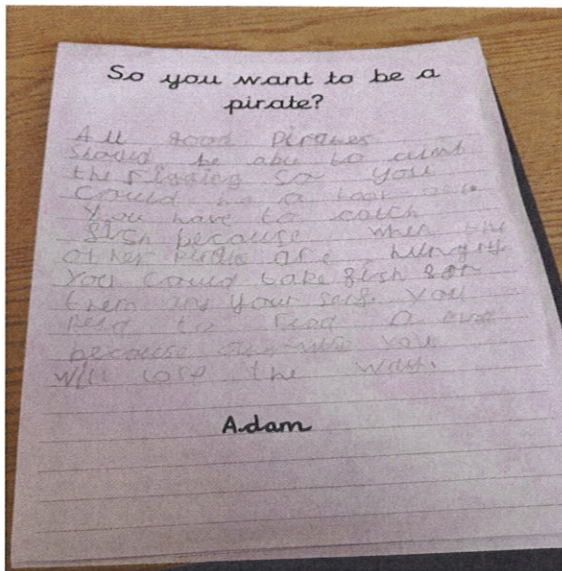 So you want to be a
pirate?
All good Pirates
should be able to climb
the rigging so you
Could be a look
You have to catch
fish because when the
other are hungry
you could take fish for
them and your self. You
need to read a
because you
will lose the way.
Adam